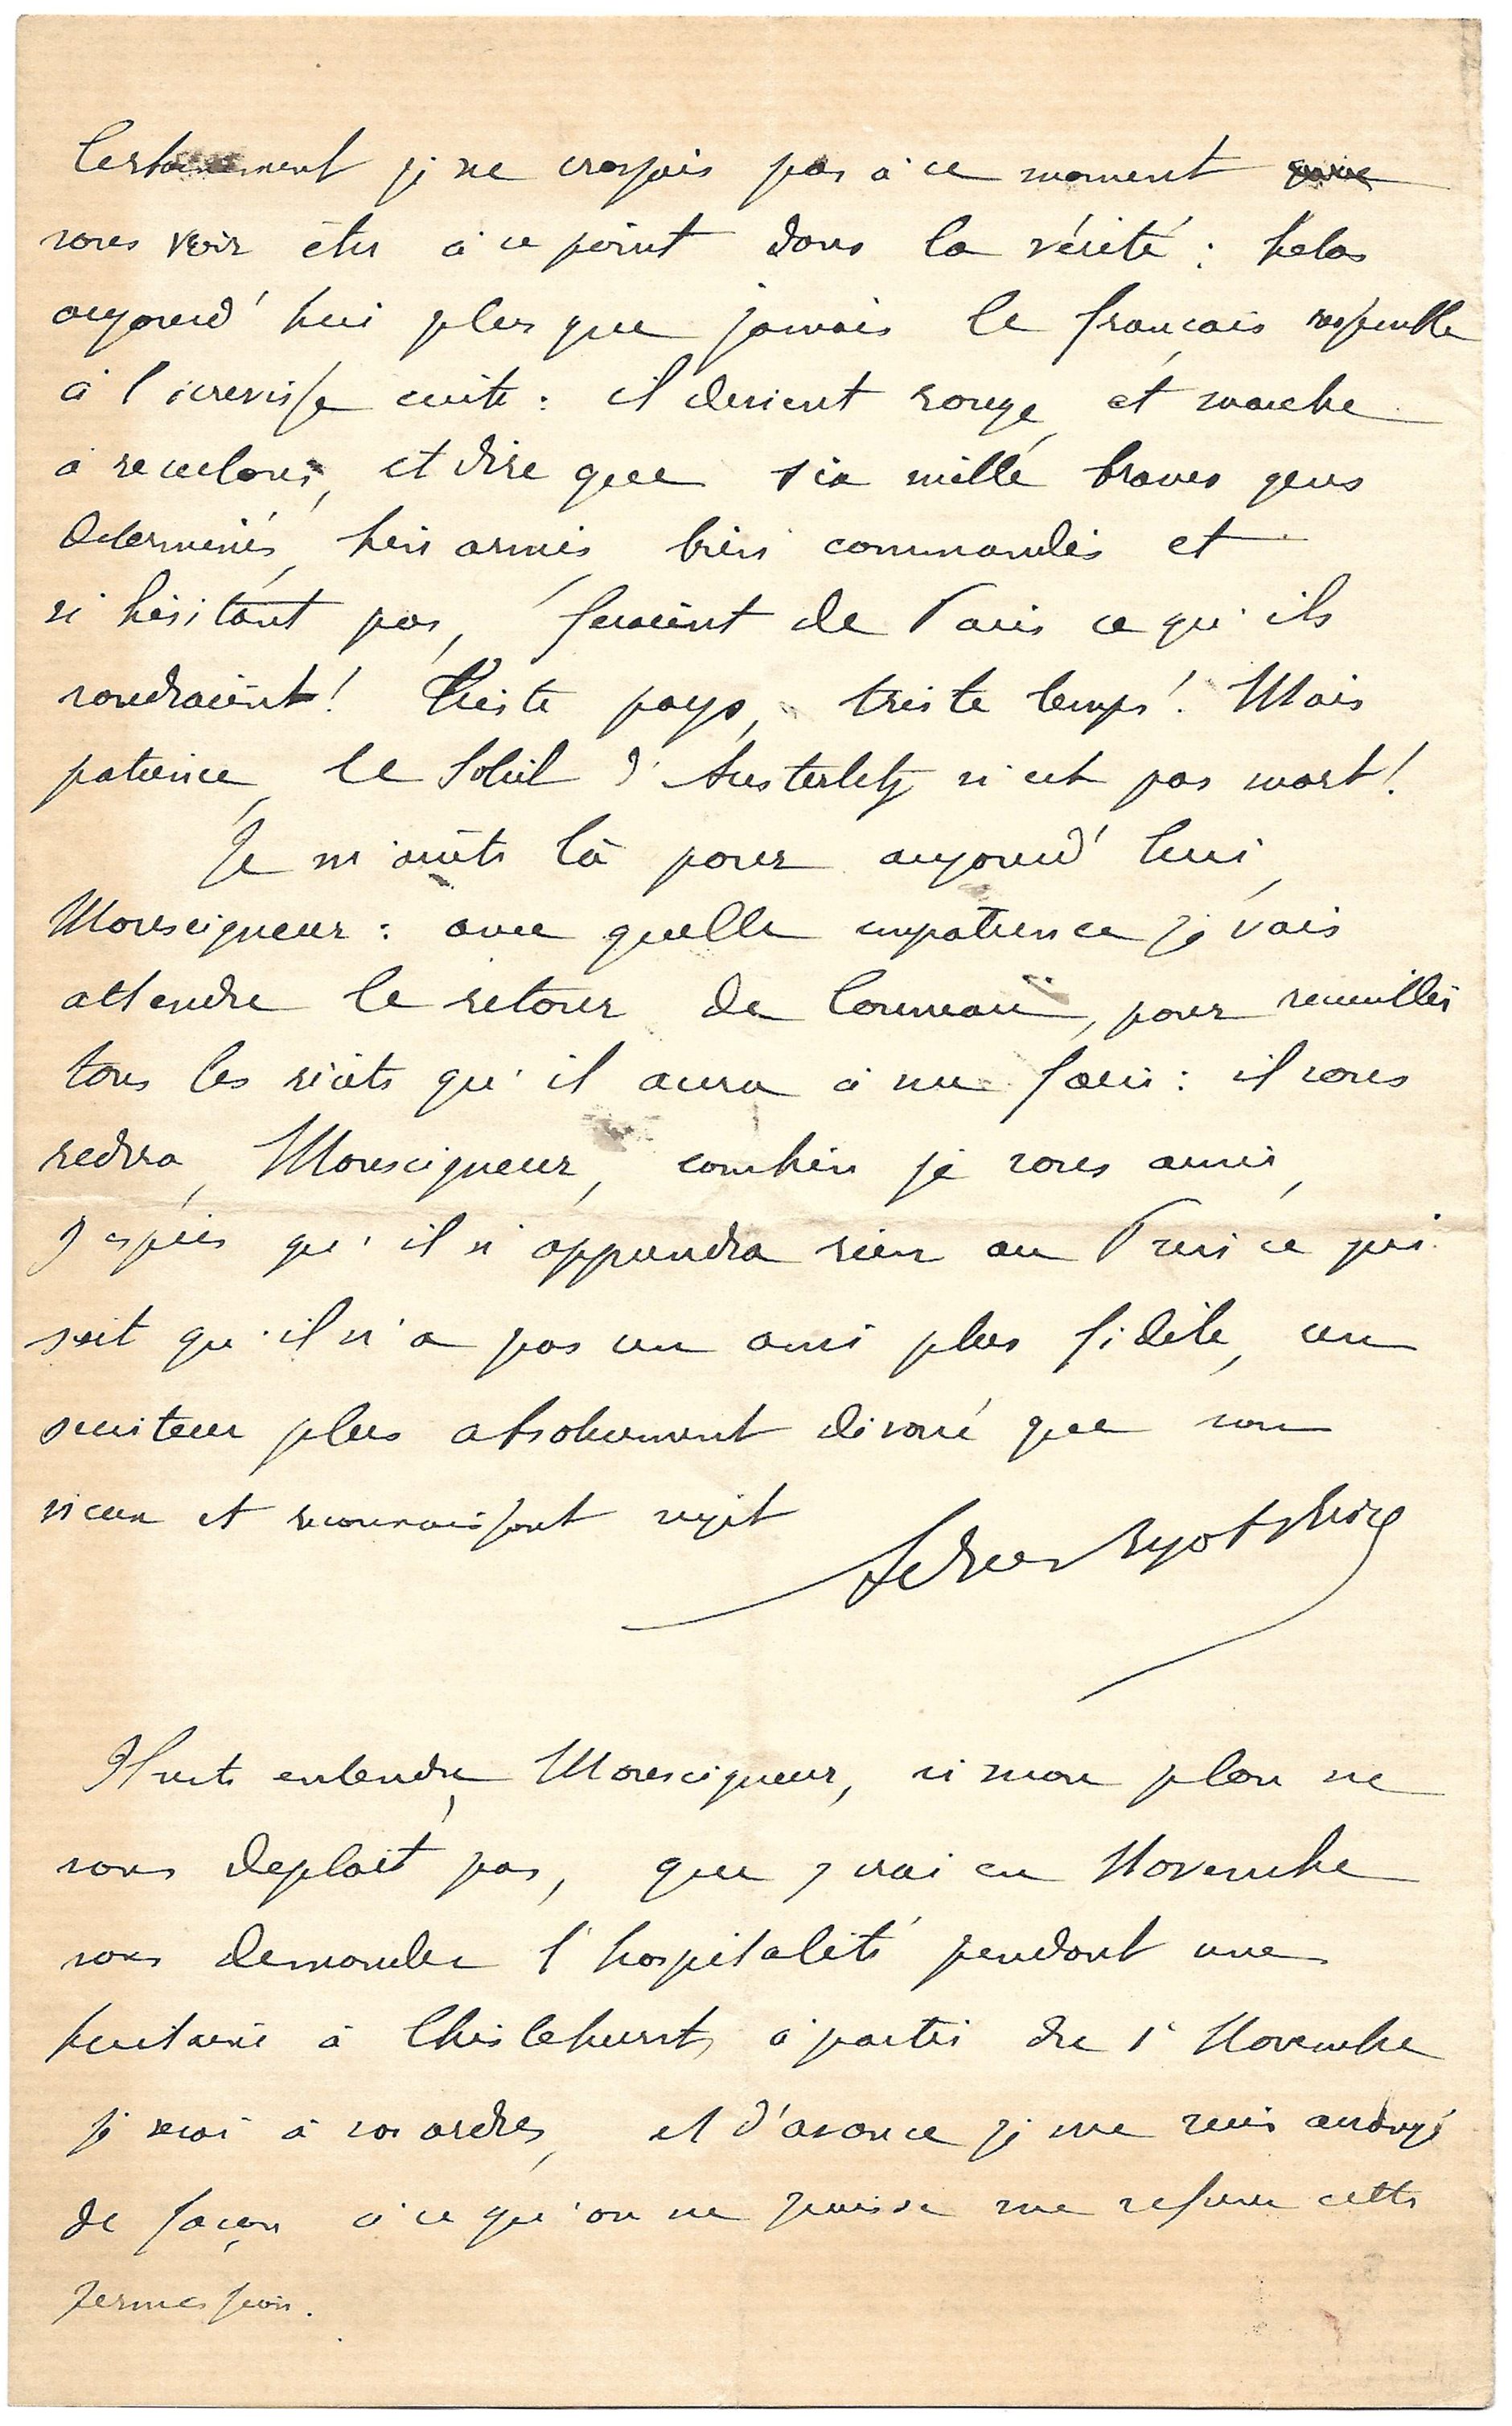 Certainement je ne croyais pas à ce moment
vous voir être à ce point dans la vérité : helas
aujourd'hui plus que jamais le français ressemble
à l'écrevisse cuite : il devient rouge et marche
à reculons, et dire que six mille braves gens
determinés, bien armés, bien commandés et
n'hésitant pas, feraient de Paris ce qu'ils
voudraient ! Triste pays, triste temps ! Mais
patience, le Soleil d'Austerlitz n'est pas mort !
Je m'arrête là pour aujourd'hui,
Monseigneur : avec quelle impatience je vais
attendre le retour de , pour recueillir
tous les récits qu'il aura à me faire : il vous
redira, Monseigneur, combien je vous aime,
j'espère qu'il n'apprendra rien au Prince qui
sait qu'il n'a pas un ami plus fidèle, un
serviteur plus absolument dévoué que son
vieux et reconnaissant sujet
Il reste entendu, Monseigneur, si mon plan ne
vous deplait pas, que j'irai en Novembre
vous demander l'hospitalité pendant une
huitaine à Chislehurst, à partir du 1r Novembre
je serai à vos ordres, et d'avance je me suis arrangé
de façon à ce qu'on ne puisse me refuser cette
permission.